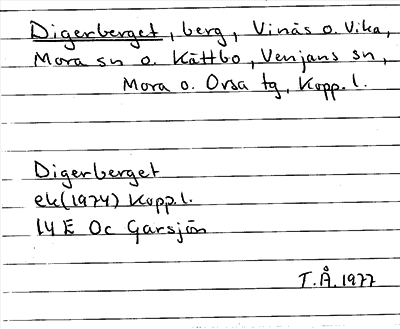 Digerberget, berg, Vinäs o. Vika,
Mora sn o. Kättbo, Venjans sn,
Mora o. Orsa tg, Kopp.l.
Digerberget
ek(1974) Kopp.l.
14 E Oc Garsjön
T.Å. 1977